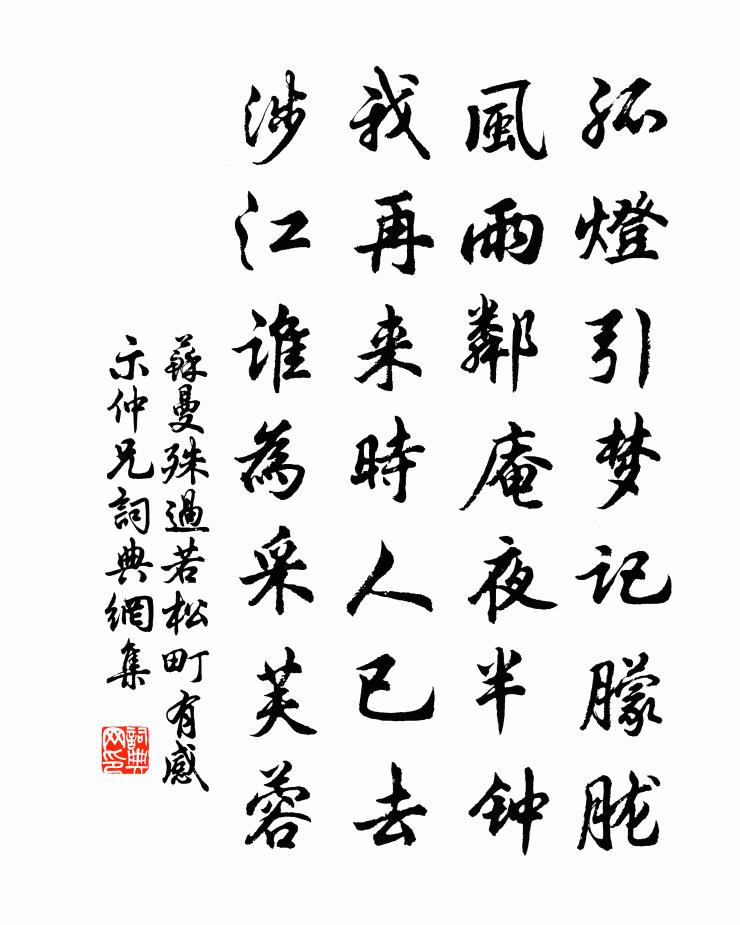 孤燈引梦记朦胧
風雨鄰庵夜半钟
我再来時人已去
涉江谁為采芙蓉
蘇曼殊過若松町有感
示仲兄詞典網集
詞典网印